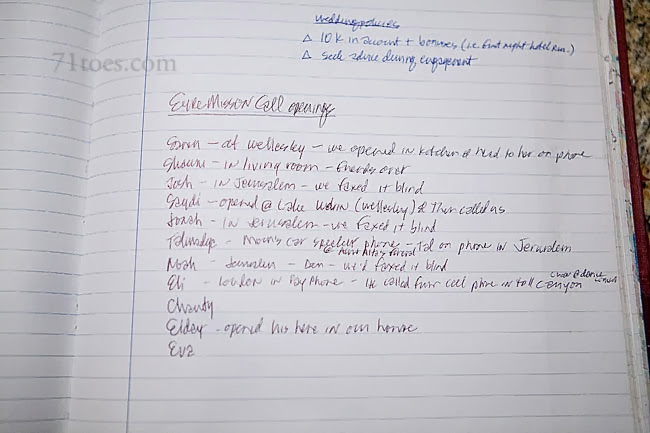 71toes.com
wedding policies
Δ 10k in account + bonuses (i.e. first night hotel
Δ seek advice during engagement
Eyre Mission Call openings
Saren - at Wellesley - we opened in kitchen & read to her on phone
Shawni - in living room - friends over
Josh - in Jerusalem - we faxed it blind
Saydi - opened @ Lake (Wellesley) & then called us
Jonah - in Jerusalem - we faxed it blind
Talmadge - Mom's car speaker phone - Tal on phone in Jerusalem
Noah - Jerusalem - Dan - we'd faxed it blind
Eli - London in Pay Phone - He called from cell phone in tall canyon
Charity
Eldey - opened his here in our house
Eva